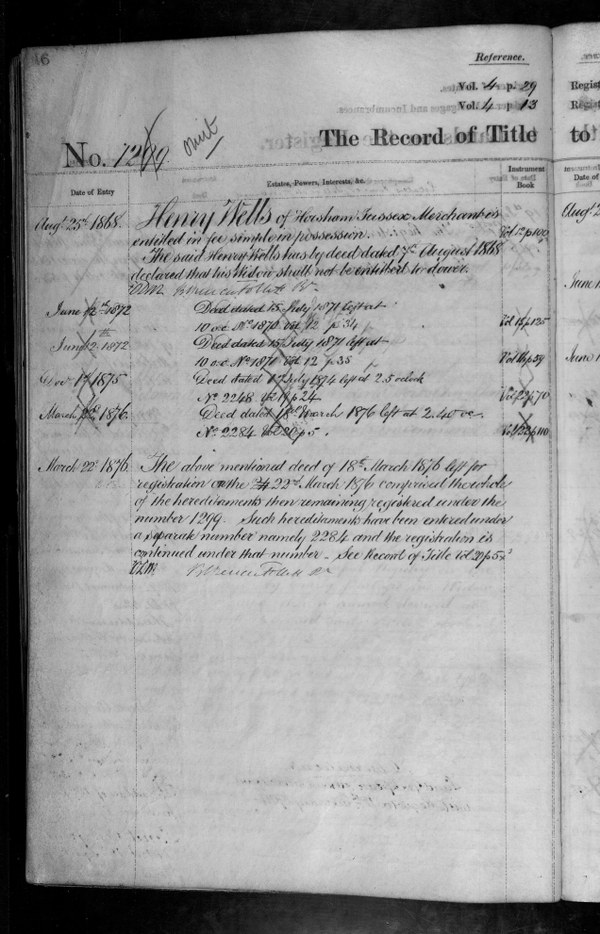 46
Reference.
Vol. 4 p. 29
Vol. 4 p. 13
No. 1299
omit
The Record of Title
Date of Entry
Estates, Powers, Interests, &c.
Instrument Book
Augt 25th 1868.
Henry Wells of Horsham Sussex Merchant is
entitled in fee simple in possession.
Vol 12 p 100
The said Henry Wells has by deed dated 7th August 1868
declared that his Widow shall not be entitled to dower.
June 12th 1872
Deed dated 15 July 1871 left at
10 oc. No. 1870 Vol. 12 p. 34
Vol 16 p 135
June 12th 1872
Deed dated 15 July 1871 left at
10 oc. No. 1871 Vol. 12 p 35
1875
Deed dated 1st July 1874 left at 2.5 oclock
No. 2248 Vol 19 p 24.
March 1876.
Deed dated 18th March 1876 left at 2.40 oc.
No. 2284 Vol 20 p 5.
Vol 22 p 110
March 22d 1876.
The above mentioned deed of 18th March 1876 left for
registration on the 22nd March 1876 comprised the whole
of the hereditaments then remaining registered under the
number 1299. Such hereditaments have been entered under
a separate number namely 2284 and the registration is
continued under that number. See Record of Title Vol 20 p 5
to
Regist
Regist
Date of
Augt 2
June 1
June 1